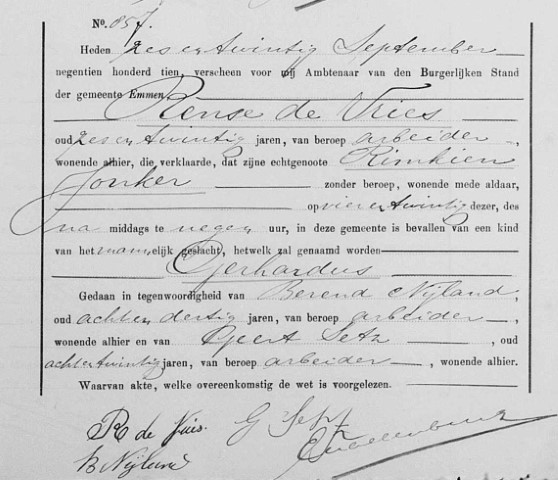 No. 857.
Heden zes en twintig September
negentien honderd tien, verscheen voor mij Ambtenaar van den Burgerlijken Stand
der gemeente Emmen
Rense de Vries
oud zes en twintig jaren, van beroep arbeider,
wonende alhier, die verklaarde, dat zijne echtgenoote Rimkien
Jonker zonder beroep, wonende mede aldaar,
op vier en twintig dezer, des
na middags te negen uur, in deze gemeente is bevallen van een kind
van het mannelijk geslacht, hetwelk zal genaamd worden
Gerhardus
Gedaan in tegenwoordigheid van Berend Nijland,
oud acht en dertig jaren, van beroep arbeider,
wonende alhier en van Geert Setz, oud
acht en twintig jaren, van beroep arbeider, wonende alhier.
Waarvan akte, welke overeenkomstig de wet is voorgelezen.
R de Vries.
G
B Nijland